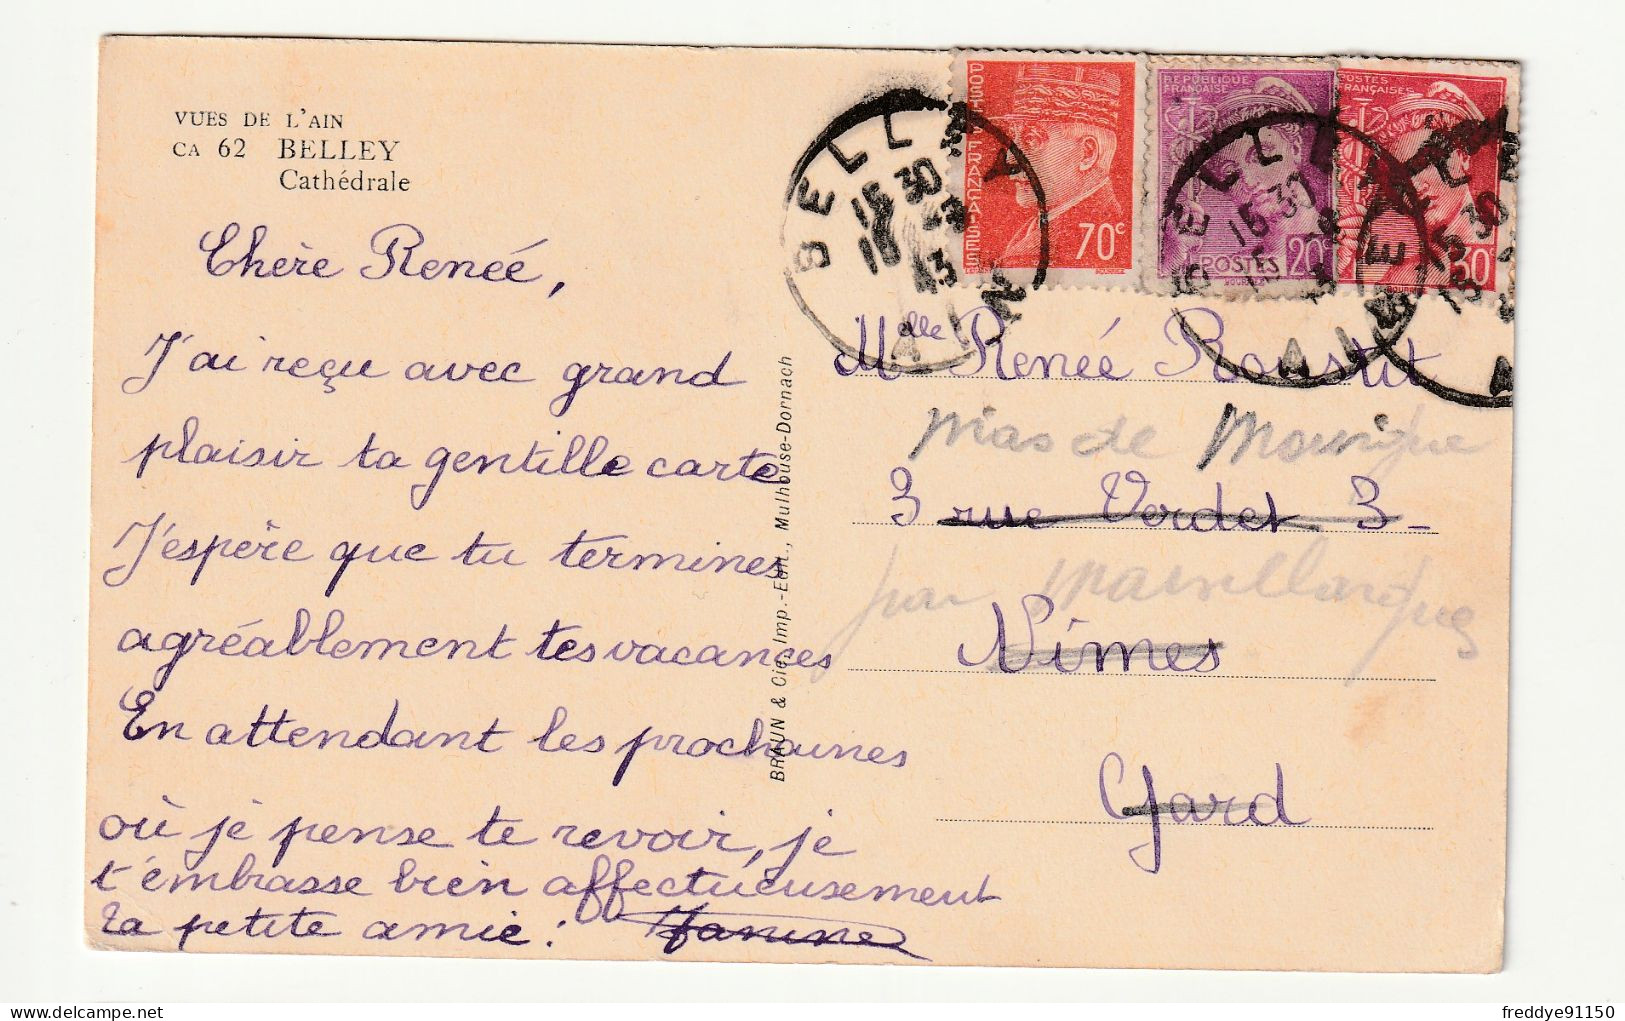 VUES DE L'AIN
CA 62 BELLEY
Cathédrale
Chère Renée,
J'ai reçu avec grand
plaisir ta gentille carte
J'espère que tu termines
agréablement tes vacances
En attendant les prochaines
où je pense te revoir, je
t'embrasse bien affectueusement
ta petite amie : Janine
BRAUN & Cie, Imp.-Edit., Mulhouse-Dornach
POSTES FRANÇAISES
70c
REPUBLIQUE
FRANÇAISE
POSTES 20c
POSTES
FRANÇAISES
30c
BELLEY
15 30
15
43
AIN
BELLEY
15 30
15
AIN
15 30
15
Melle Renée Roustit
Mas de
3 rue Verdet 3-
par Marsillargues
Nîmes
Gard
freddye91150